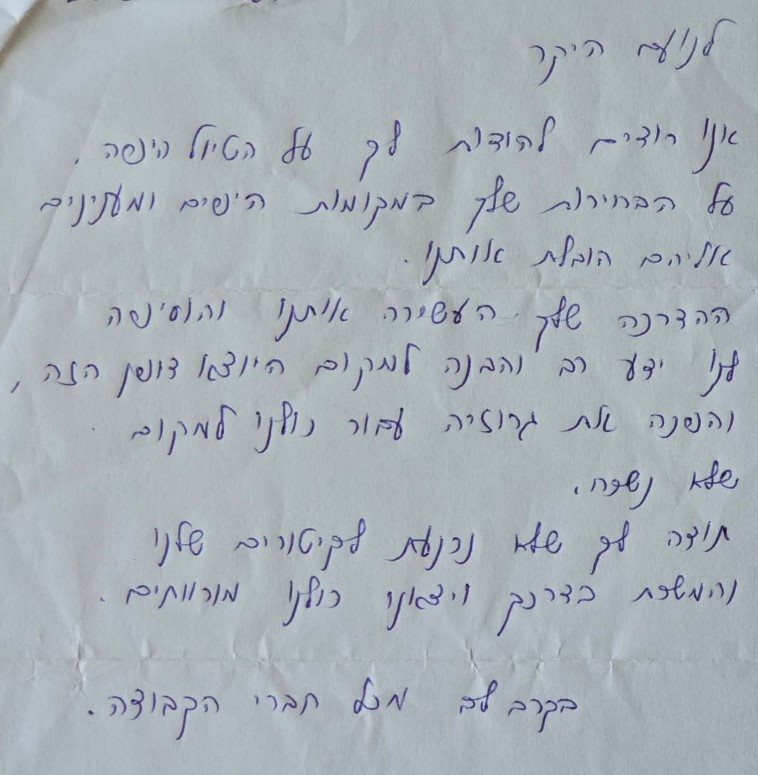 לנועם היקר
אנו רוצים להודות לך על הטיול היפה,
על הבחירות שלך במקומות היפים ומענינים
אליהם הובלת אותנו.
ההדרכה שלך העשירה אותנו והוסיפה
לנו ידע רב והבנה למקום היוצא דופן הזה,
והפכה את גרוזיה עבור כולנו למקום
שלא נשכח.
תודה לך שלא נכנעת לקיטורים שלנו
והמשכת בדרכך ויצאנו כולנו מורווחים.
בקרב לב מכל חברי הקבוצה.